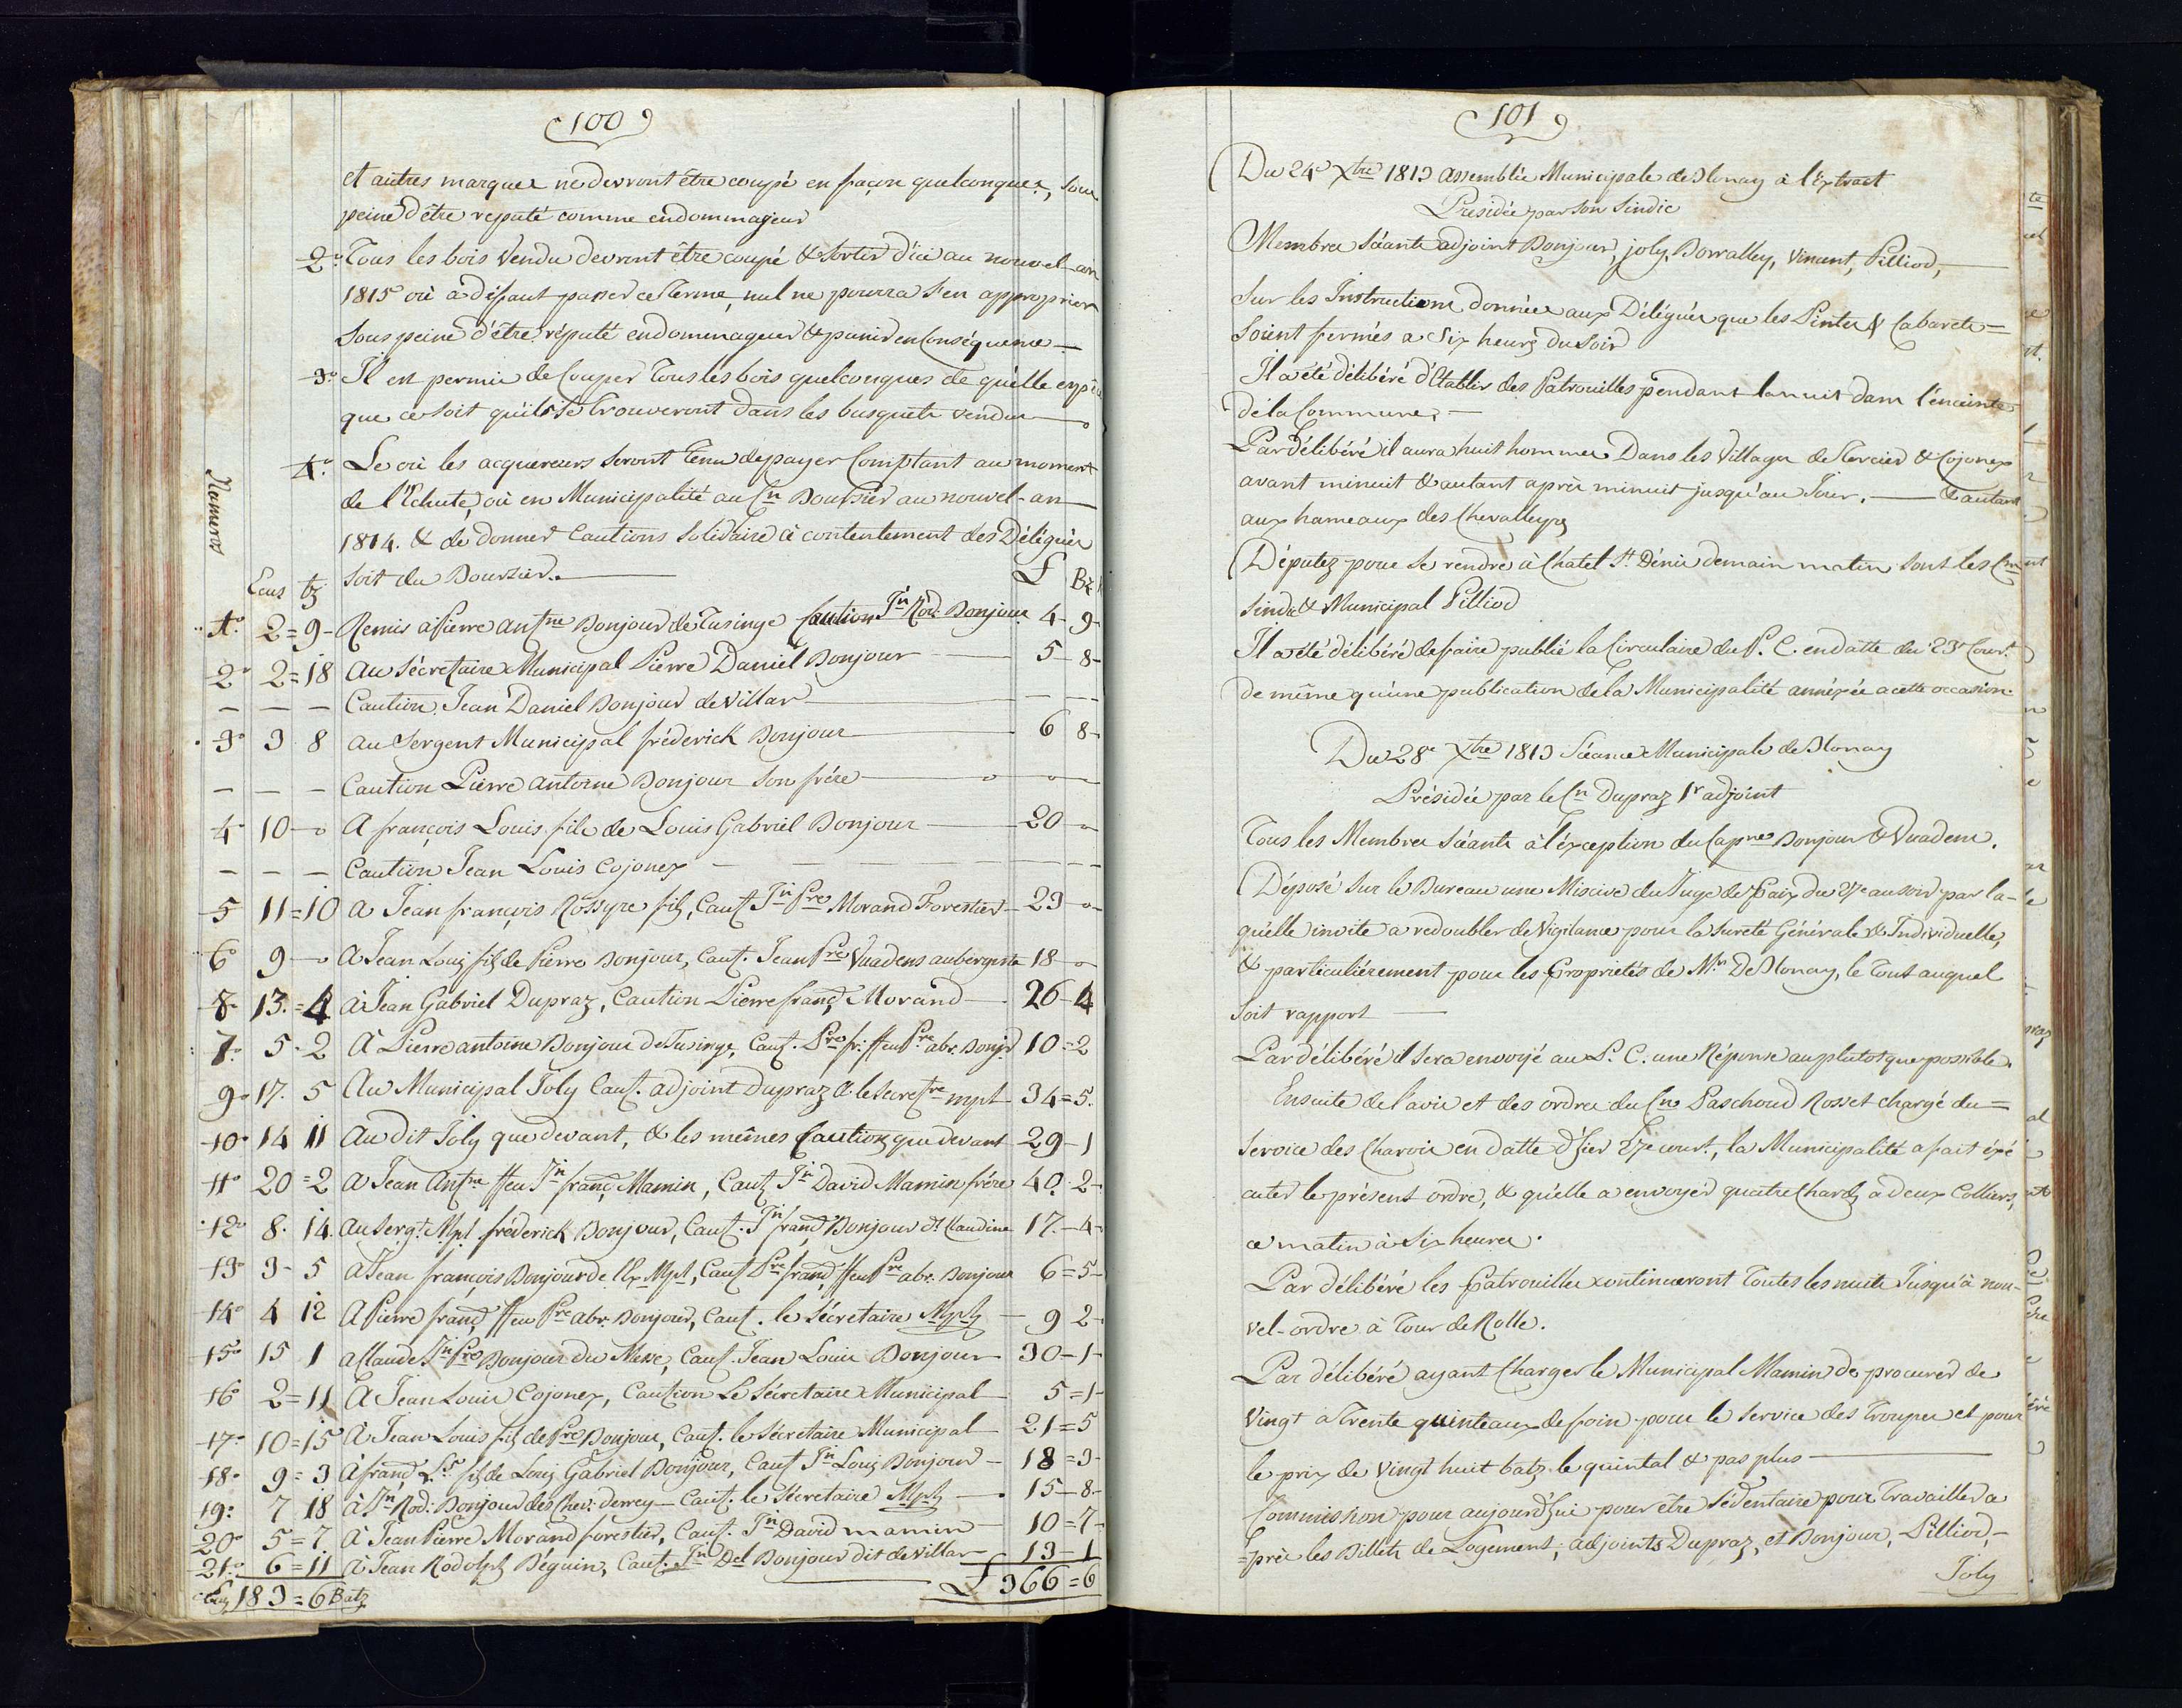 100
et autres marques ne devront être coupé en façon quelconques, sous
peine d'être reputé comme endommageur
2° Tous les bois Vendu devront être coupé & sortir d'ici au nouvel-an
1815 où à défaut passer ce Terme, nul ne pourra s'en approprier
Sous peine d'être réputé endommageur & punir en Conséquence
3° Il en permis de Couper Tous les bois quelconques de quelle espèce
que ce soit qu'ils se trouveront dans les busquets vendus
4° Le où les acquereurs seront Tenu de payer Comptant au moment
de l'Echute, où en Municipalité au Cn Boursier au nouvel-an
1814. & de donner Cautions Solidaire à contentement des Délégués
soit du Boursier.
Numeros
Ecus bz
L Bz
1° 2=9 Remis à Pierre Antne Bonjour de Tusinge Caution Jn Rod. Bonjour 4-9-
2° 2=18 Au Sécretaire Municipal Pierre Daniel Bonjour 5-8-
Caution Jean Daniel Bonjour de Villar
3° 3 8 au Sergent Municipal fréderick Bonjour 6 8-
Caution Pierre Antoine Bonjour son frére
4° 10-0 A françois Louis fils de Louis Gabriel Bonjour 20-0
Caution Jean Louis Cojonex
5 11=10 A Jean françois Rossyre fils, Caut. Jn Pre Morand Forestier 23-0
6° 9-0 A Jean Louis fils de Pierre Bonjour, Caut. Jean Pre Vuadens aubergiste 18-0
8- 13.=4 à Jean Gabriel Dupraz, Caution Pierre franç Morand 26-4
7° 5-2 A Pierre antoine Bonjour de Tusinge, Caut. Pre fr: ffeu Pre abr. Bonjr 10=2
9° 17. 5 Au Municipal Joly Caut. adjoint Dupraz & le secretre mpl 34=5.
10° 14 11 Au dit Joly que devant, & les mêmes Caution que devant 29-1
11° 20=2 A Jean Antne ffeu Jn franç Mamin, Caut. Jn David Mamin frére 40.2-
12° 8. 14. au Sergt. Mpl fréderick Bonjour, Caut. Jn franç Bonjour dt Claudine 17.-4-
13° 3-5 A Jean françois Bonjour de l'Ex Mpl, Caut Pre franç ffeu Pre abr. Bonjour 6=5-
14° 4 12 A Pierre franç ffeu Pre abr. Bonjour, Caut. le Sécretaire Mpl 9 2-
15° 15 1 a Claude Jn Pre Bonjour du Mere, Caut. Jean Louis Bonjour 30-1-
16° 2=11 A Jean Louis Cojonex, Caution Le Sécretaire Municipal 5=1-
17° 10=15 A Jean Louis fils de Pre Bonjour, Caut. le Sécretaire Municipal 21=5
18° 9=3 A franç Ls fils de Louis Gabriel Bonjour, Caut Jn Louis Bonjour 18=3-
19° 7 18 à Jn Rod: Bonjour des Chev: derrey Caut. le Sécretaire Mpl 15-8-
20° 5=7 A Jean Pierre Morand forestier, Caut. Jn David mamin 10=7-
21° 6=11 à Jean Rodolph Béguin, Caut. Jn Del Bonjour dit de Villar 13-1
Ecuz 183=6 Batz L 366=6
101
Du 24e Xbre 1813 Assemblée Municipale de Blonay à l'éxtract
Présidée par son Sindic
Membres Séants adjoint Bonjour, joly, Borralley, Vincent, Pilliod,
Sur les Instructions données aux Délégués que les Pintes & Cabarets
soient fermés a Six heurs du soir
Il a été délibéré d'Etablir des Patrouilles pendant la nuit dans l'enceinte
de la Commune,
Par délibéré il aura huit hommes Dans les Villages de Tercier & Cojonex
avant minuit & autant après minuit jusqu'au Jour. & autant
aux hameaux des Chevalleyres
Députez pour se rendre à Chatel St. Dénis demain matin sont les Cns
Sindic & Municipal Pilliod
Il a été délibéré de faire publié la Circulaire du P. C. en datte du 23e Cour.t
de même qu'une publication de la Municipalité annéxée a cette occasion.
Du 28e Xbre 1813 Séance Municipale de Blonay
Présidée par le Cn Dupraz 1r adjoint
Tous les Membres Séants à l'éxception du Capne Bonjour & Vuadens.
Déposé sur le Bureau une Missive du Juge de Paix du 27e au soir par la-
quelle invite a redoubler de Vigilance pour la sureté Générale & Individuelle,
& particuliérement pour les Propriétés de Mr. De Blonay, le Tout auquel
soit rapport
Par délibéré il sera envoyé au P. C. une Réponse au plutot que possible.
Ensuite de l'avis et des ordres du Cn Paschoud Rosset chargé du=
Service des Charois en datte d'hier 27e cour.t, la Municipalité a fait éxé
cuter le présent ordre, & qu'elle a envoyer quatre Chars à deux Colliers,
ce matin à Six heures.
Par délibéré les Patrouilles continueront Toutes les nuits Jusqu'à nou-
vel-ordre à Tour de Rolle.
Par délibéré ayant Charger le Municipal Mamin de procurer de
Vingt à Trente quinteaux de foin pour le Service des Troupes et pour
le prix de Vingt huit batz le quintal & pas plus
Commission pour aujourd'hui pour être Sédentaire pour Travailler a
=près les Billets de Logement; adjoints Dupraz, et Bonjour, Pilliod,-
Joly